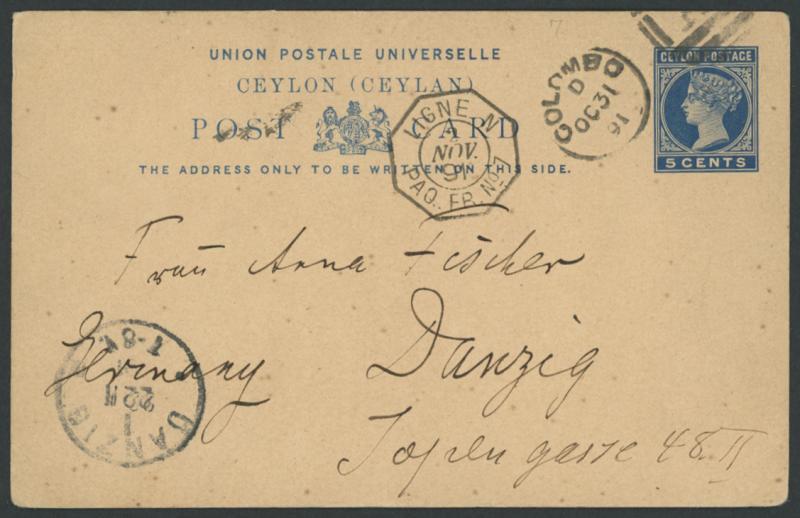 7
UNION POSTALE UNIVERSELLE
CEYLON (CEYLAN)
POST CARD
THE ADDRESS ONLY TO BE WRITTEN ON THIS SIDE.
COLOMBO
D
OC 31
91
CEYLON POSTAGE
5 CENTS
LIGNE N
NOV.
91
PAQ. FR. No 7
Frau Anna Fischer
Germany Danzig
Jopengasse 48 II
DANZIG
1
22 11
7-8V